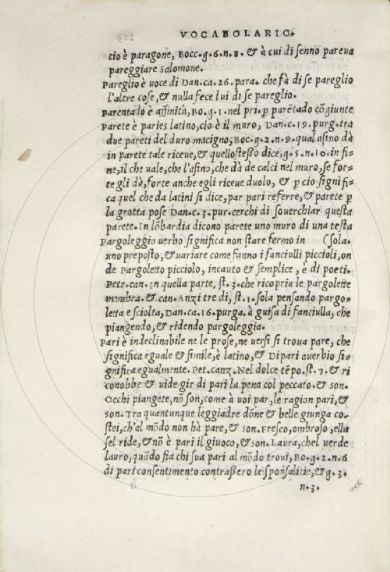 VOCABOLARIO.
cio è paragone, Bocc.g.6.n.8. & à cui di senno pareua
pareggiare salomone.
Pareglio è uoce di Dan.ca.26.para. che fà di se pareglio
l'altre cose, & nulla fece lui di se pareglio.
Parentado è affinità, Bo.g.1. nel pri. ꝑ parẽtado cõgiunte
parete è paries latino, cio è il muro, Dan.c.19. purg. tra
due pareti del duro macigno, Boc.g.2.n.9. qual asino dà
in parete tale riceue, & quello stesso dice, g.5.n.10. in fi-
ne, il che uale, che l'asino, che dà de calci nel muro, se for-
te gli dà, forte anche egli riceue duolo, & ꝑ cio signifi-
ca quel che da latini si dice, par pari referre, & parete ꝑ
la grotta pose Dan.c.3. pur. cerchi di souerchiar questa
parete. In lõbardia dicono parete uno muro di una testa
Pargoleggia uerbo significa non stare fermo in (sola.
uno preposto, & uariare come fanno i fanciulli piccioli, on
de Pargoletto picciolo, incauto & semplice, è di poeti.
Petr.can.in quella parte, st.3. che ricopria le pargolette
membra. & can. Anzi tre dì, st.1. sola pensando pargo-
letta e sciolta, Dan.ca.16. purga. à guisa di fanciulla, che
piangendo, & ridendo pargoleggia.
Pari è indeclinabile ne le prose, ne uersi si troua pare, che
significa eguale & simile, è latino, & Di pari auerbio si-
gnifica egualmente. Pet.canz. Nel dolce tẽpo. st.7. & ri
conobbe & uide gir di pari la pena col peccato. & son.
Occhi piangete, nõ son, come à uoi par, le ragion pari, &
son. Tra quantunque leggiadre dõne & belle giunga co-
stei, ch'al mõdo non hà pare, & son. Fresco, ombroso, ella
sel ride, & nõ è pari il giuoco, & son. Laura, chel uerde
lauro, quãdo fia chi sua pari al mõdo troui, Bo.g.2.n.6
di pari consentimento contrassero le sponsalitie, & g.3.
n.3.